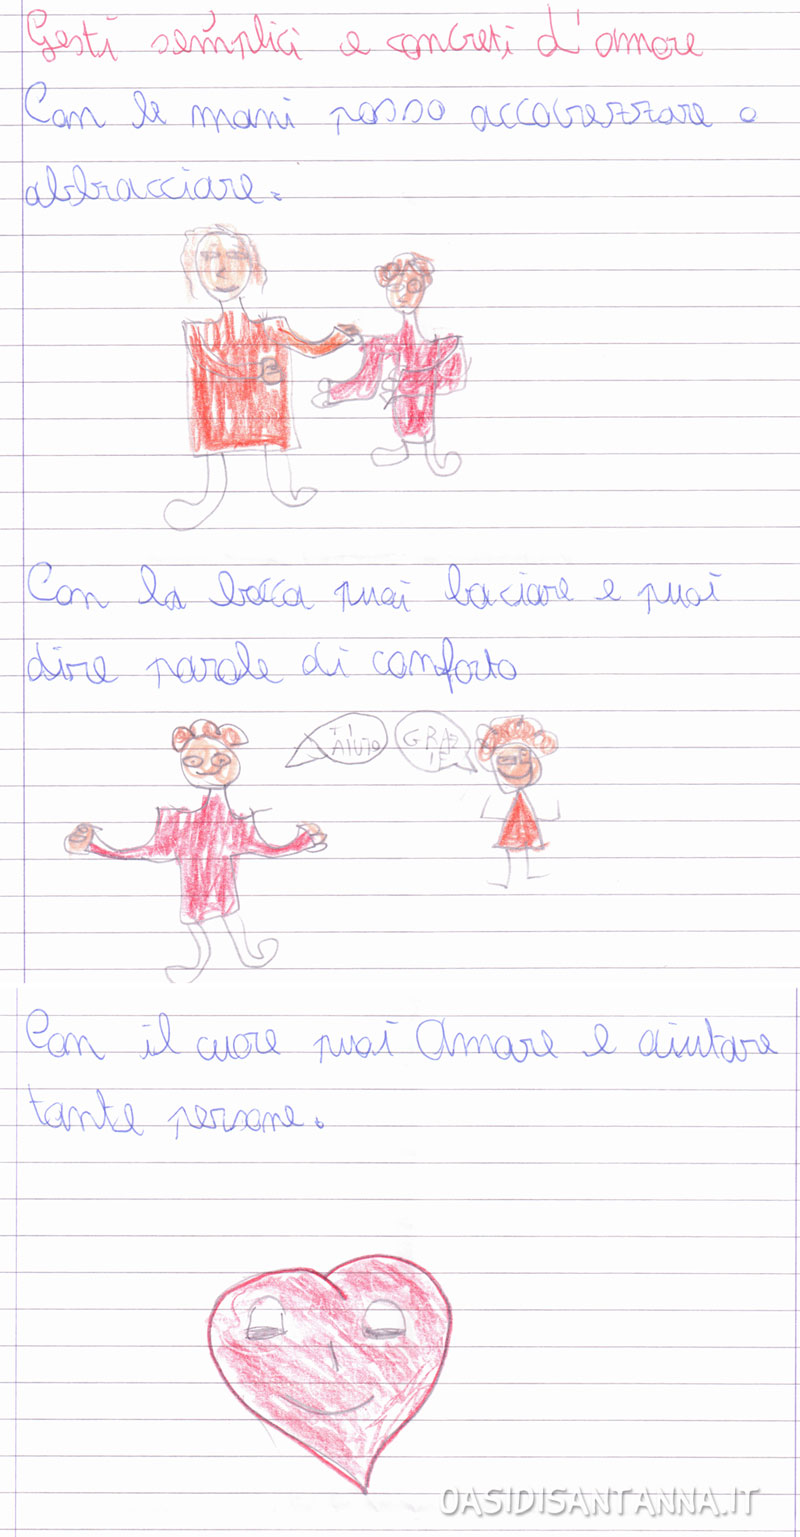 Gesti semplici e concreti d'amore
Con le mani posso accarezzare o
abbracciare.
Con la bocca puoi baciare e puoi
dire parole di conforto
TI
AIUTO
GRAZ
IE
Con il cuore puoi Amare e aiutare
tante persone.
OASIDISANTANNA.IT